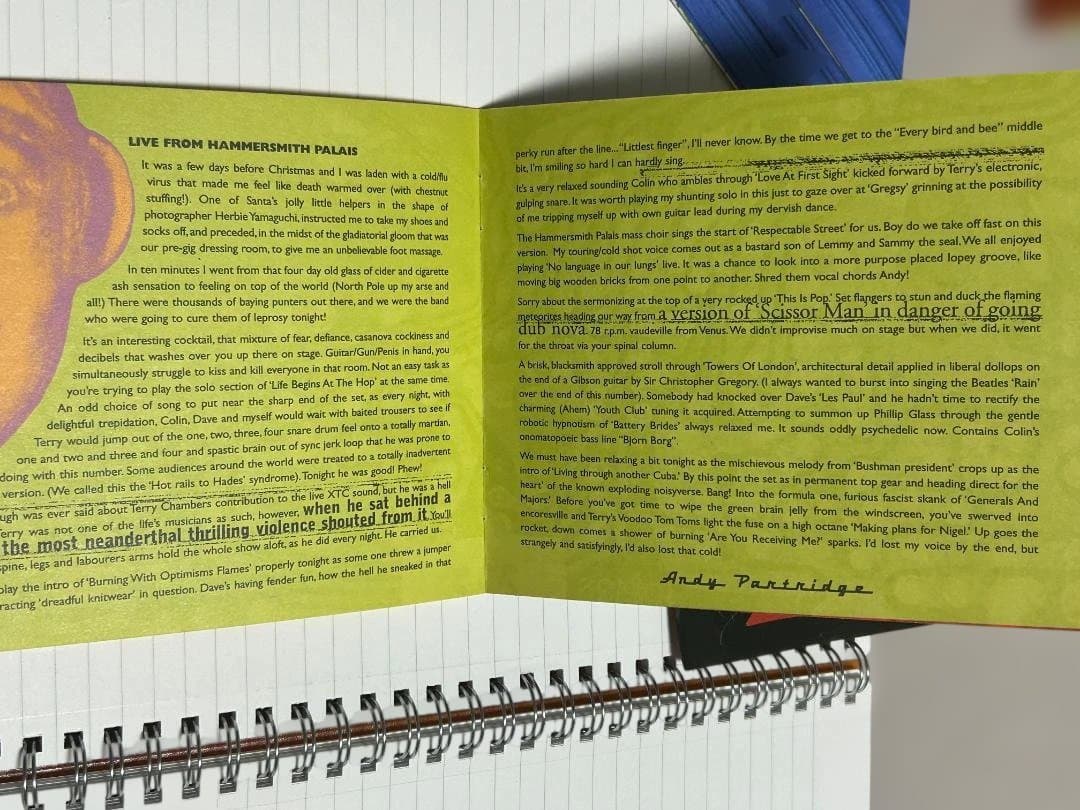 LIVE FROM HAMMERSMITH PALAIS
It was a few days before Christmas and I was laden with a cold/flu
virus that made me feel like death warmed over (with chestnut
stuffing!). One of Santa's jolly little helpers in the shape of
photographer Herbie Yamaguchi, instructed me to take my shoes and
socks off, and preceded, in the midst of the gladiatorial gloom that was
our pre-gig dressing room, to give me an unbelievable foot massage.
In ten minutes I went from that four day old glass of cider and cigarette
ash sensation to feeling on top of the world (North Pole up my arse and
all!) There were thousands of baying punters out there, and we were the band
who were going to cure them of leprosy tonight!
It's an interesting cocktail, that mixture of fear, defiance, casanova cockiness and
decibels that washes over you up there on stage. Guitar/Gun/Penis in hand, you
simultaneously struggle to kiss and kill everyone in that room. Not an easy task as
you're trying to play the solo section of 'Life Begins At The Hop' at the same time.
An odd choice of song to put near the sharp end of the set, as every night, with
delightful trepidation, Colin, Dave and myself would wait with baited trousers to see if
Terry would jump out of the one, two, three, four snare drum feel onto a totally martian,
one and two and three and four and spastic brain out of sync jerk loop that he was prone to
doing with this number. Some audiences around the world were treated to a totally inadvertent
version. (We called this the 'Hot rails to Hades' syndrome). Tonight he was good! Phew!
ough was ever said about Terry Chambers contribution to the live XTC sound, but he was a hell
Terry was not one of the life's musicians as such, however, when he sat behind a
the most neanderthal thrilling violence shouted from it. You'll
spine, legs and labourers arms hold the whole show aloft, as he did every night. He carried us.
play the intro of 'Burning With Optimisms Flames' properly tonight as some one threw a jumper
racting 'dreadful knitwear' in question. Dave's having fender fun, how the hell he sneaked in that
perky run after the line..."Littlest finger", I'll never know. By the time we get to the "Every bird and bee" middle
bit, I'm smiling so hard I can hardly sing.
It's a very relaxed sounding Colin who ambles through 'Love At First Sight' kicked forward by Terry's electronic,
gulping snare. It was worth playing my shunting solo in this just to gaze over at 'Gregsy' grinning at the possibility
of me tripping myself up with own guitar lead during my dervish dance.
The Hammersmith Palais mass choir sings the start of 'Respectable Street' for us. Boy do we take off fast on this
version. My touring/cold shot voice comes out as a bastard son of Lemmy and Sammy the seal. We all enjoyed
playing 'No language in our lungs' live. It was a chance to look into a more purpose placed lopey groove, like
moving big wooden bricks from one point to another. Shred them vocal chords Andy!
Sorry about the sermonizing at the top of a very rocked up 'This Is Pop.' Set flangers to stun and duck the flaming
meteorites heading our way from a version of 'Scissor Man' in danger of going
dub nova. 78 r.p.m. vaudeville from Venus. We didn't improvise much on stage but when we did, it went
for the throat via your spinal column.
A brisk, blacksmith approved stroll through 'Towers Of London', architectural detail applied in liberal dollops on
the end of a Gibson guitar by Sir Christopher Gregory. (I always wanted to burst into singing the Beatles 'Rain'
over the end of this number). Somebody had knocked over Dave's 'Les Paul' and he hadn't time to rectify the
charming (Ahem) 'Youth Club' tuning it acquired. Attempting to summon up Phillip Glass through the gentle
robotic hypnotism of 'Battery Brides' always relaxed me. It sounds oddly psychedelic now. Contains Colin's
onomatopoeic bass line "Bjorn Borg".
We must have been relaxing a bit tonight as the mischievous melody from 'Bushman president' crops up as the
intro of 'Living through another Cuba.' By this point the set as in permanent top gear and heading direct for the
heart' of the known exploding noisyverse. Bang! Into the formula one, furious fascist skank of 'Generals And
Majors.' Before you've got time to wipe the green brain jelly from the windscreen, you've swerved into
encoresville and Terry's Voodoo Tom Toms light the fuse on a high octane 'Making plans for Nigel.' Up goes the
rocket, down comes a shower of burning 'Are You Receiving Me?' sparks. I'd lost my voice by the end, but
strangely and satisfyingly, I'd also lost that cold!
Andy Partridge